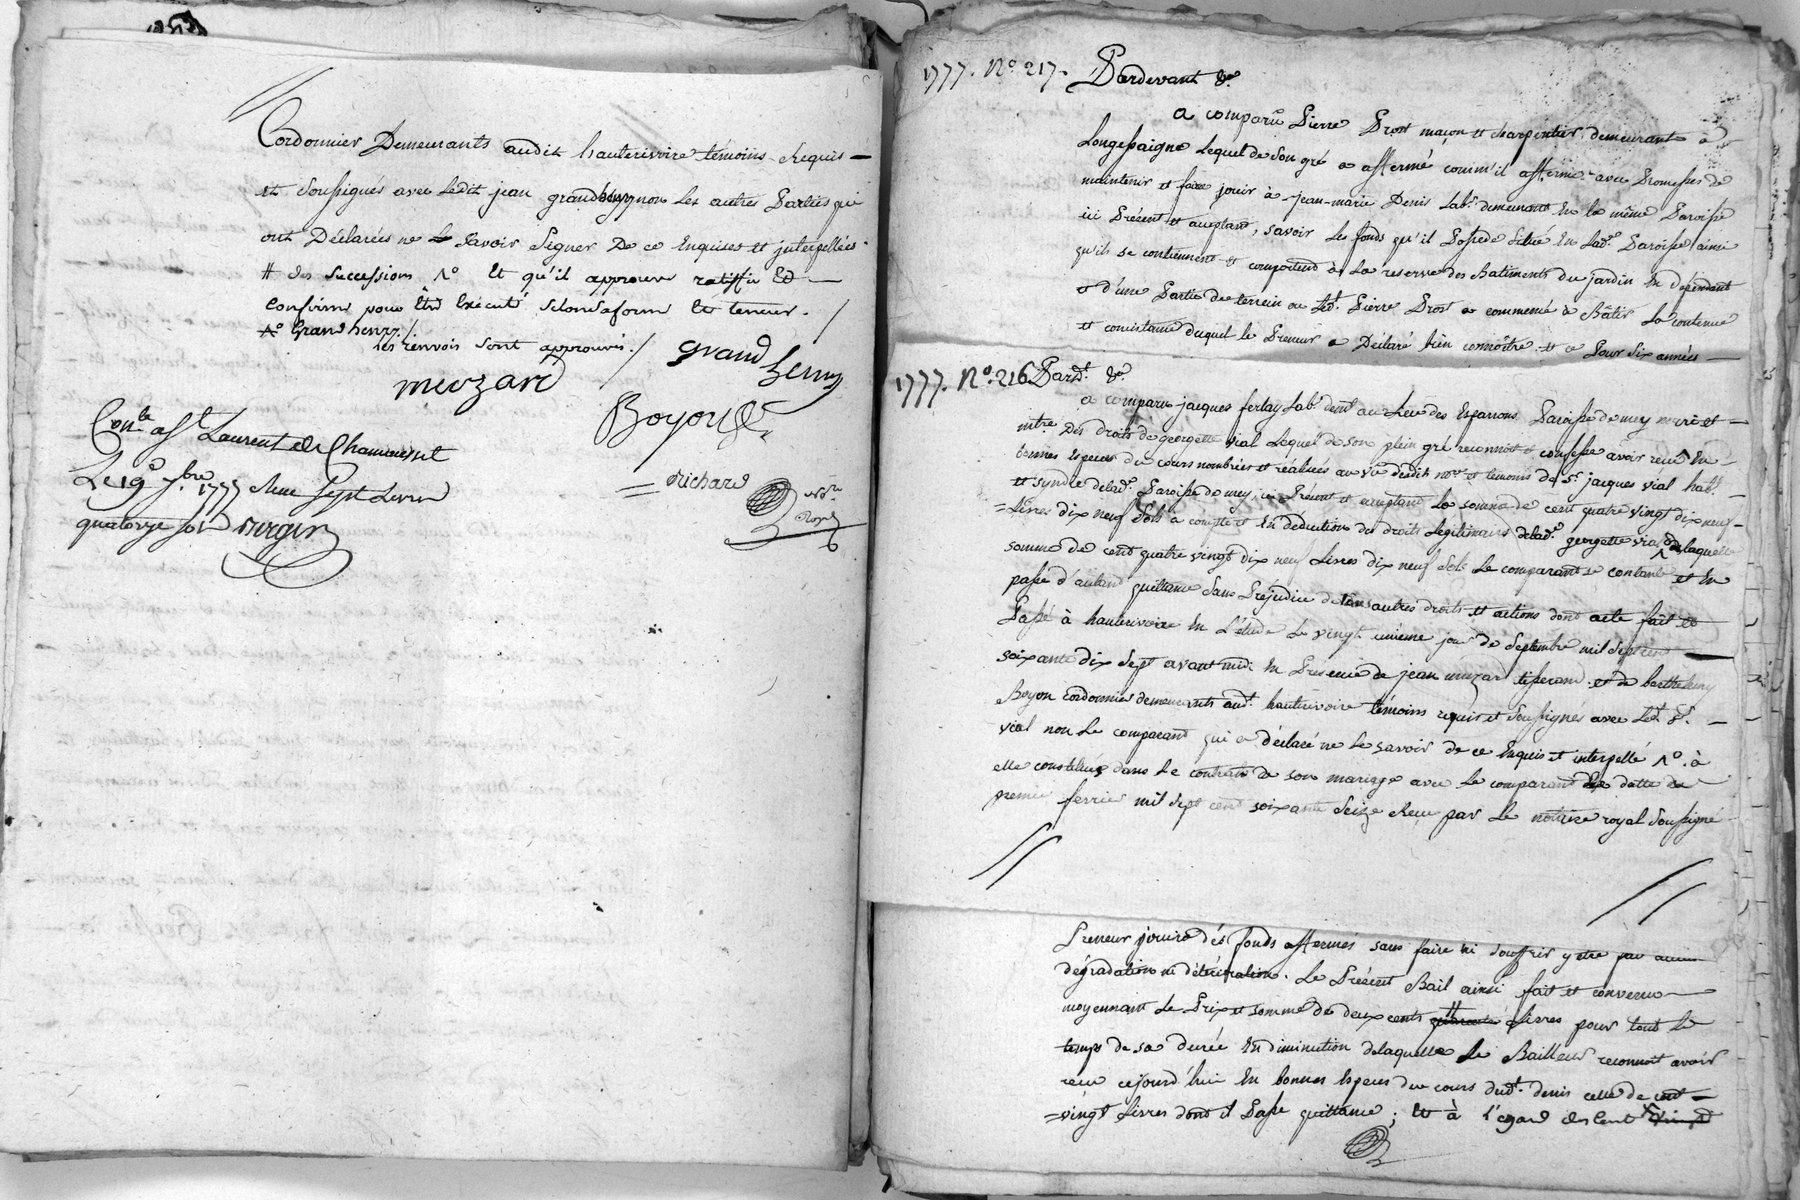 Cordonnier Demeurants audit hauterivoire témoins Requis
et soussignés avec Ledit jean grandheny non Les autres Parties qui
ont Déclarées ne Savoir Signer De ce Enquises et interpellées.
# des successions Et qu'il approuve ratiffie Et
confirme pour Être Exécuté selon sa forme Et teneur. /
Grand heny /.
les renvois sont approuvés. / grand
heny
murzard
Boyon
Con.le a St. Laurent de Chamousset
Le 19 7bre 1777 Reçu sept Livres
quatorze sols
Richard
No.re
Royal
1777. No. 217. Pardevant &c.
a comparu Pierre Prost maçon et charpentier demeurant à
Longessaigne Lequel de son gré a affermé comm'il afferme avec Promesses de
maintenir et faire jouir à jean-marie Denis Lab.r demeurant En la même Paroisse
ici Présent et acceptant, savoir Les fonds qu'il Possede Situé En Lad.e Paroisse ainsi
qu'ils se contiennent et comportend à La reserve des Batiments du jardin En dépendant
et d'une Partie de terrein ou Led.t Pierre Prost a commencé à Bâtir La contenue
et consistance duquel le Preneur a Déclaré bien connoître et ce Pour Six années
1777. No. 216 Pard.t &c.
a comparu jacques ferlay Lab.r dem.t au Lieu des Esparrons Paroisse de mey marié et
mtre Des droits de georgette vial Lequel de son plein gré reconnoit et confesse avoir recu En
bonnes Especes du cours nombrées et réalisées au vu dudit no.re et temoins de S.r jacques vial hab.t
et syndic de lad.e Paroisse de mey, ici Présent et acceptant La somme de cent quatre vingt dix neuf
Livres dix neuf Sols a compte et En déduction des droits Legitimaires de lad.e georgette vial de laquelle
somme de cent quatre vingt dix neuf Livres dix neuf Sols Le comparant se contante et En
passe d'autant quittance Sans Préjudice de tous autres droits et actions dont acte fait et
Passé à hauterivoire En L'étude Le vingt unieme jour de Septembre mil Sept cent
soixante dix Sept avant midi En Présence de jean murzar tisserand et de barthelemy
Boyon cordonnier demeurants aud.t hauterivoire témoins requis et Soussignés avec Led.t S.r
vial non Le comparant qui a déclaré ne Le savoir de ce Enquis et interpellé à
elle constituée dans Le contrat de son mariage avec Le comparant de datte du
premier fevrier mil Sept cent soixante Seize Reçu par Le notaire royal Soussigné
Preneur jouira des fonds affermés sans faire ni souffrir y etre fait aucune
dégradations ni déterioration. Le Présent Bail ainsi fait et convenu
moyennant Le Prix et somme de deux cents quarante Livres pour tout Le
temps de sa durée En diminution de laquelle Le Bailleur reconnoit avoir
recu cejourd'hui En bonnes Especes du cours dud.t denis celle de cent
vingt Livres dont il Passe quittance; Et à l'égard des Cent vingt